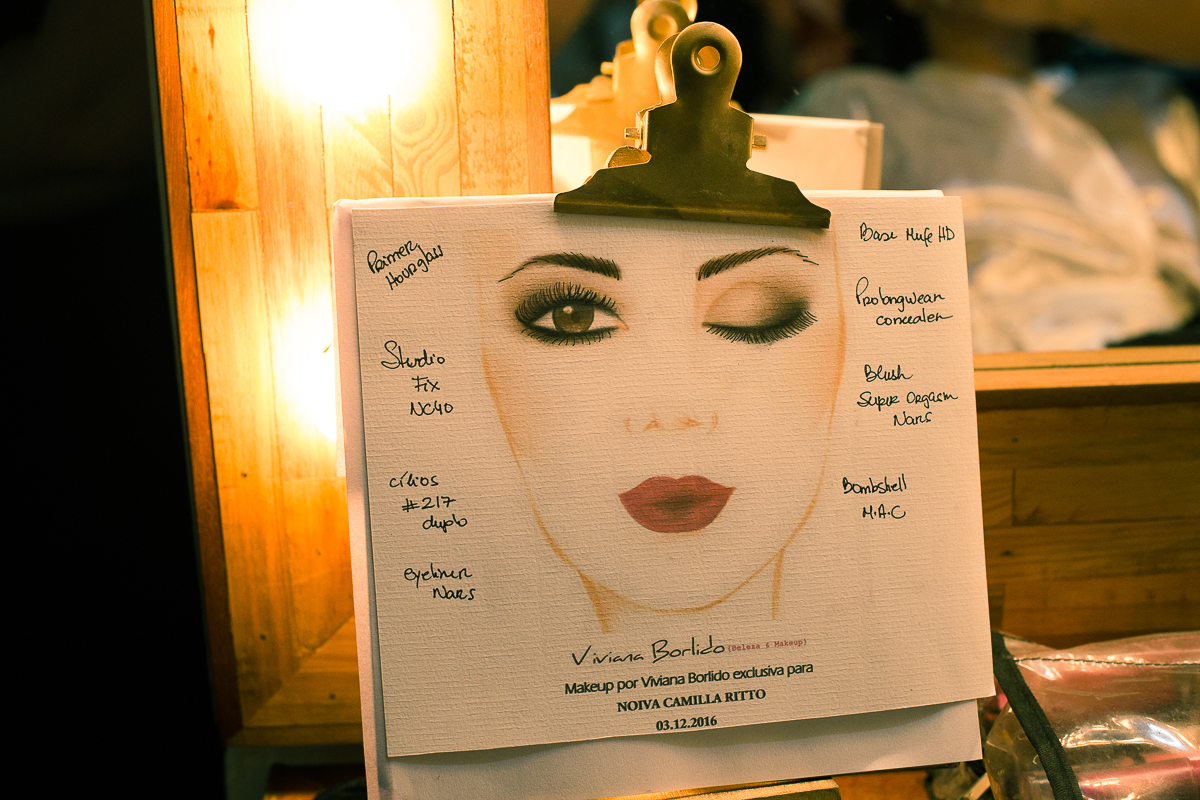 Primer
Hourglass
Studio
Fix
NC40
cílios
#217
duplo
eyeliner
Nars
Base Mufe HD
Prolongwear
concealer
Blush
Super Orgasm
Nars
Bombshell
M.A.C
Viviana Borlido (Beleza & Makeup)
Makeup por Viviana Borlido exclusiva para
NOIVA CAMILLA RITTO
03.12.2016